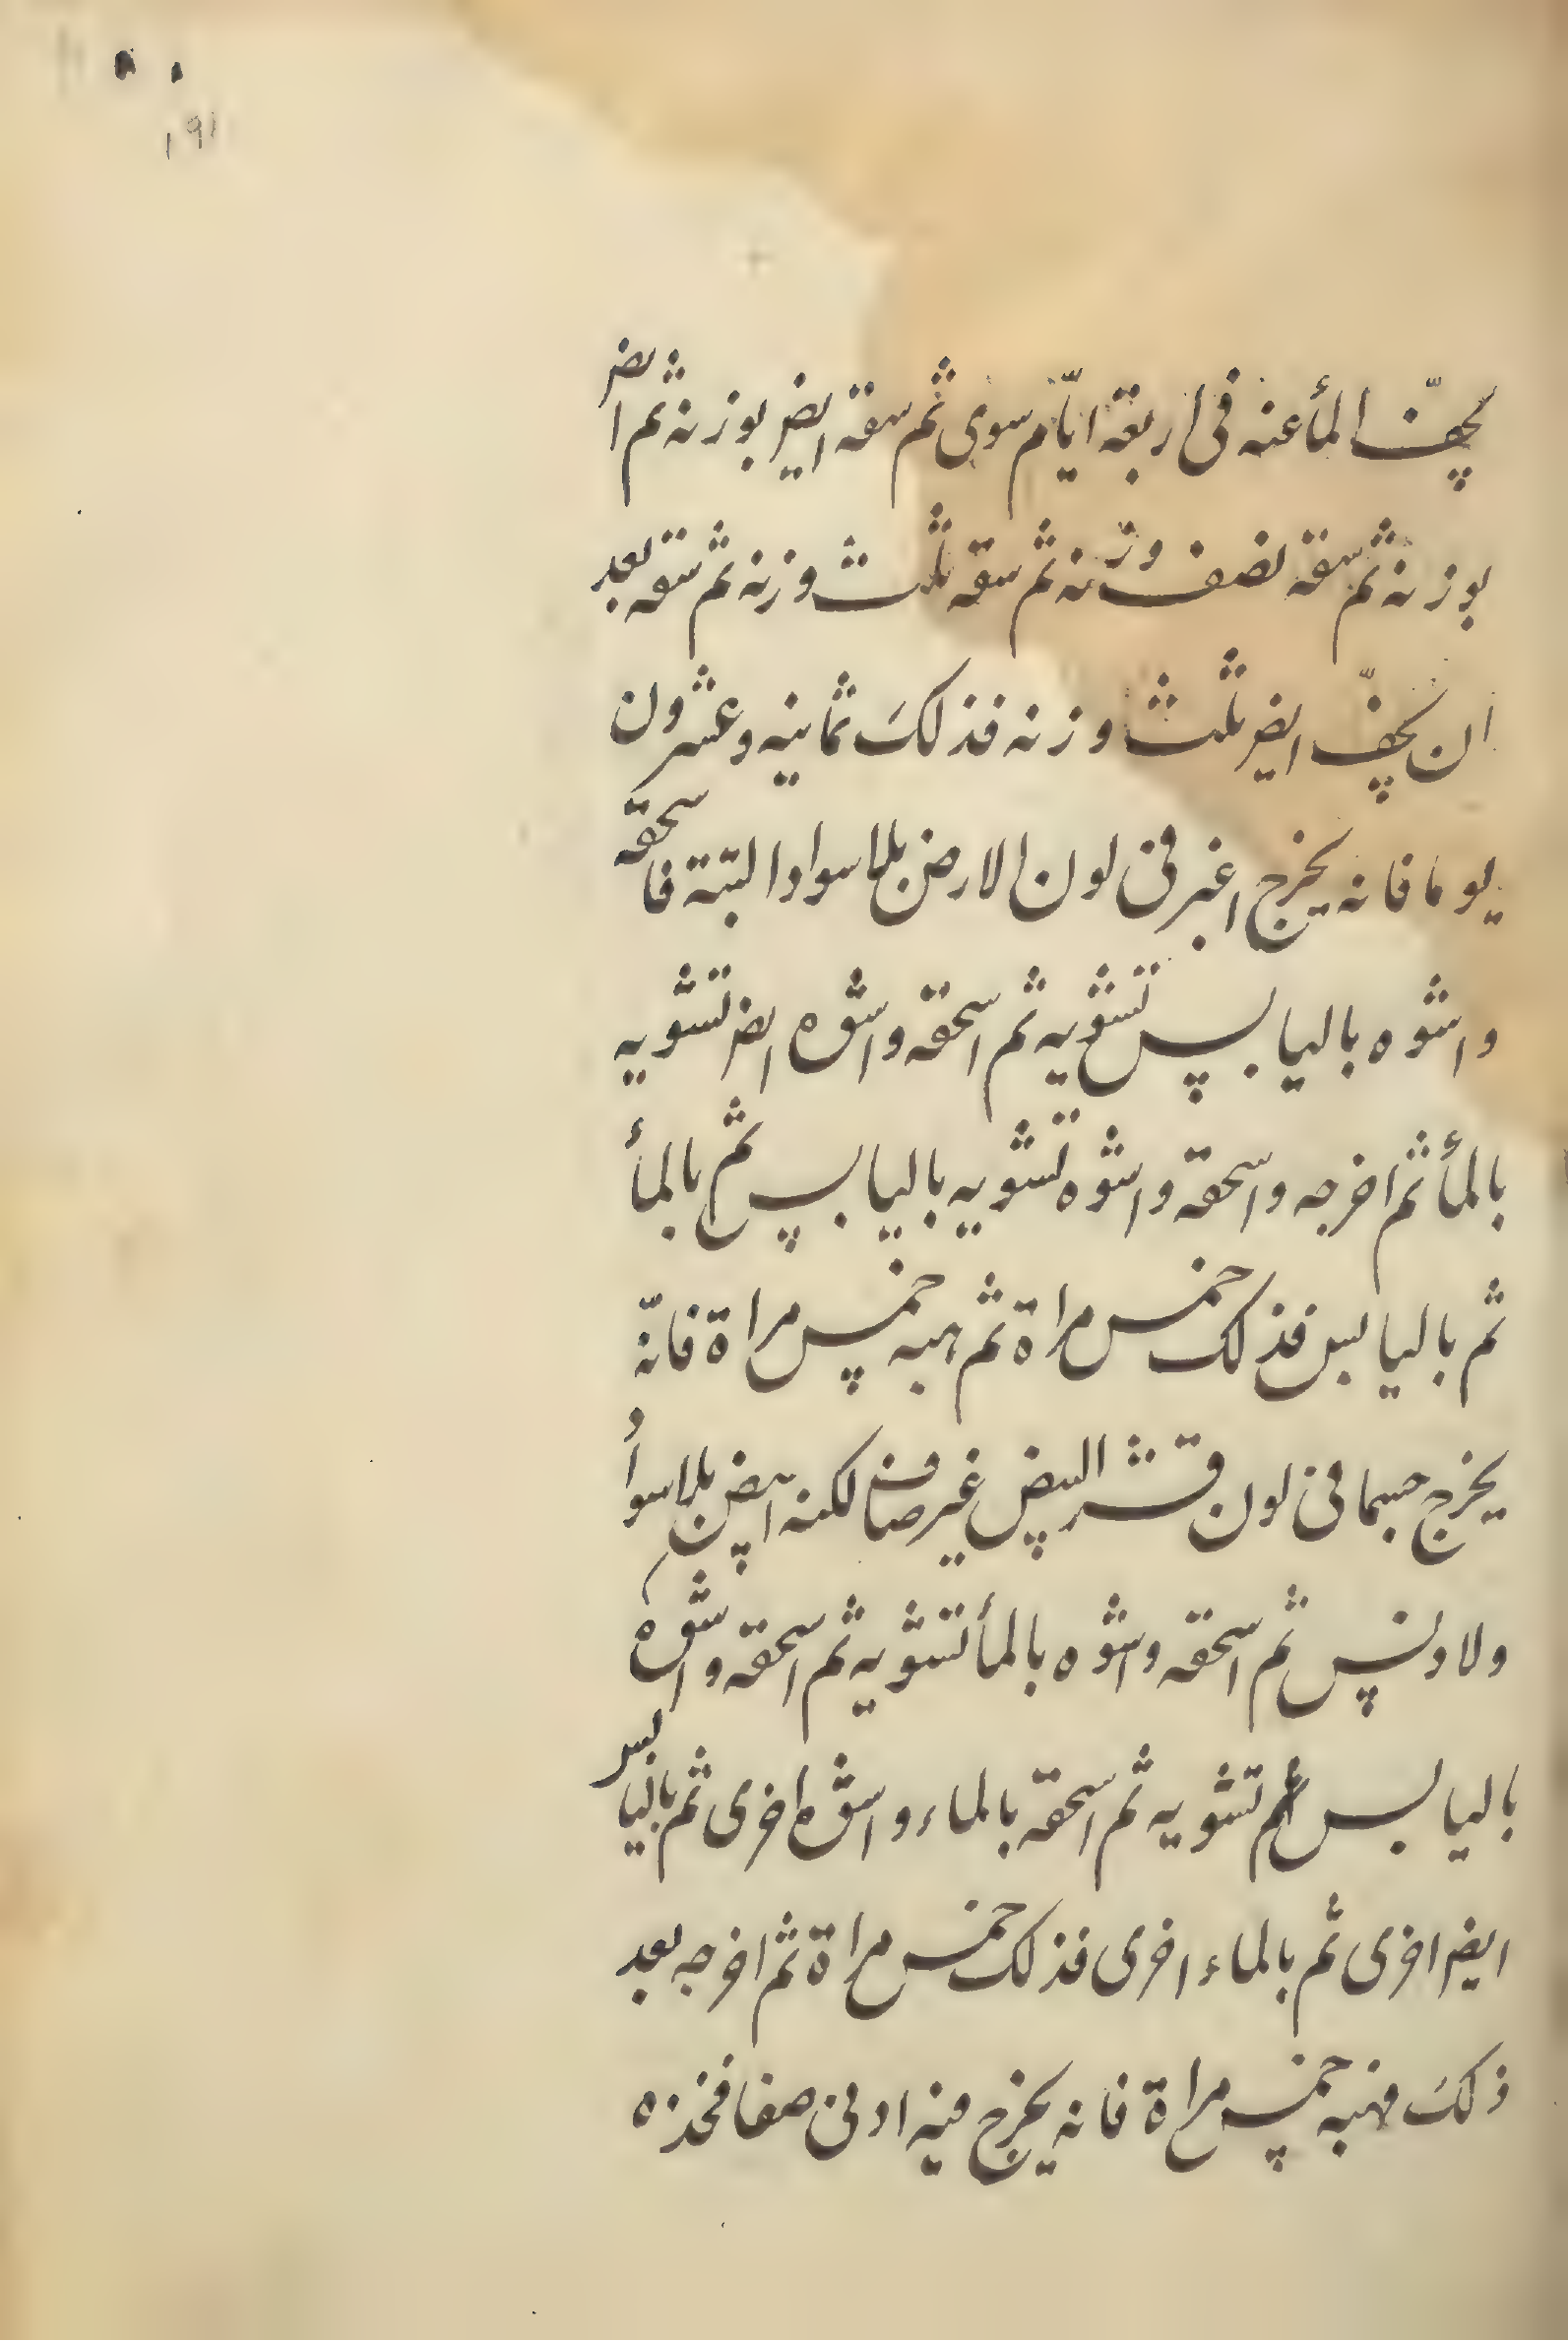 ١٩١
يجفّ المأ عنه فى اربعة ايّام سوى ثم سقه ايض بوزنه ثم ايض
بوزنه ثم سقه نصف وزنه ثم سقه ثلث وزنه ثم سقه بعد
ان يجفّ ايض ثلث وزنه فذلك ثمانيه وعشرون
يوما فانه يخرج اغبر فى لون الارض بلا سوادا البتة فاسحقه
واشوه باليابس تشويه ثم اسحقه واشوه ايض تشويه
بالمأ ثم اخرجه واسحقه واشوه تشويه باليابس ثم بالمأ
ثم باليابس فذلك خمس مراة ثم هبه خمس مراة فانّه
يخرج جسما فى لون قشر البيض غير صاف لكنه ابيض بلا سوأ
ولا دنس ثم اسحقه واشوه بالمأ تشويه ثم اسحقه واشوه
باليابس تشويه ثم اسحقه بالماء واشوه اخرى ثم باليابس
ايض اخرى ثم بالماء اخرى فذلك خمس مراة ثم اخرجه بعد
ذلك فهبه خمس مراة فانه يخرج فيه ادنى صفا فخذه